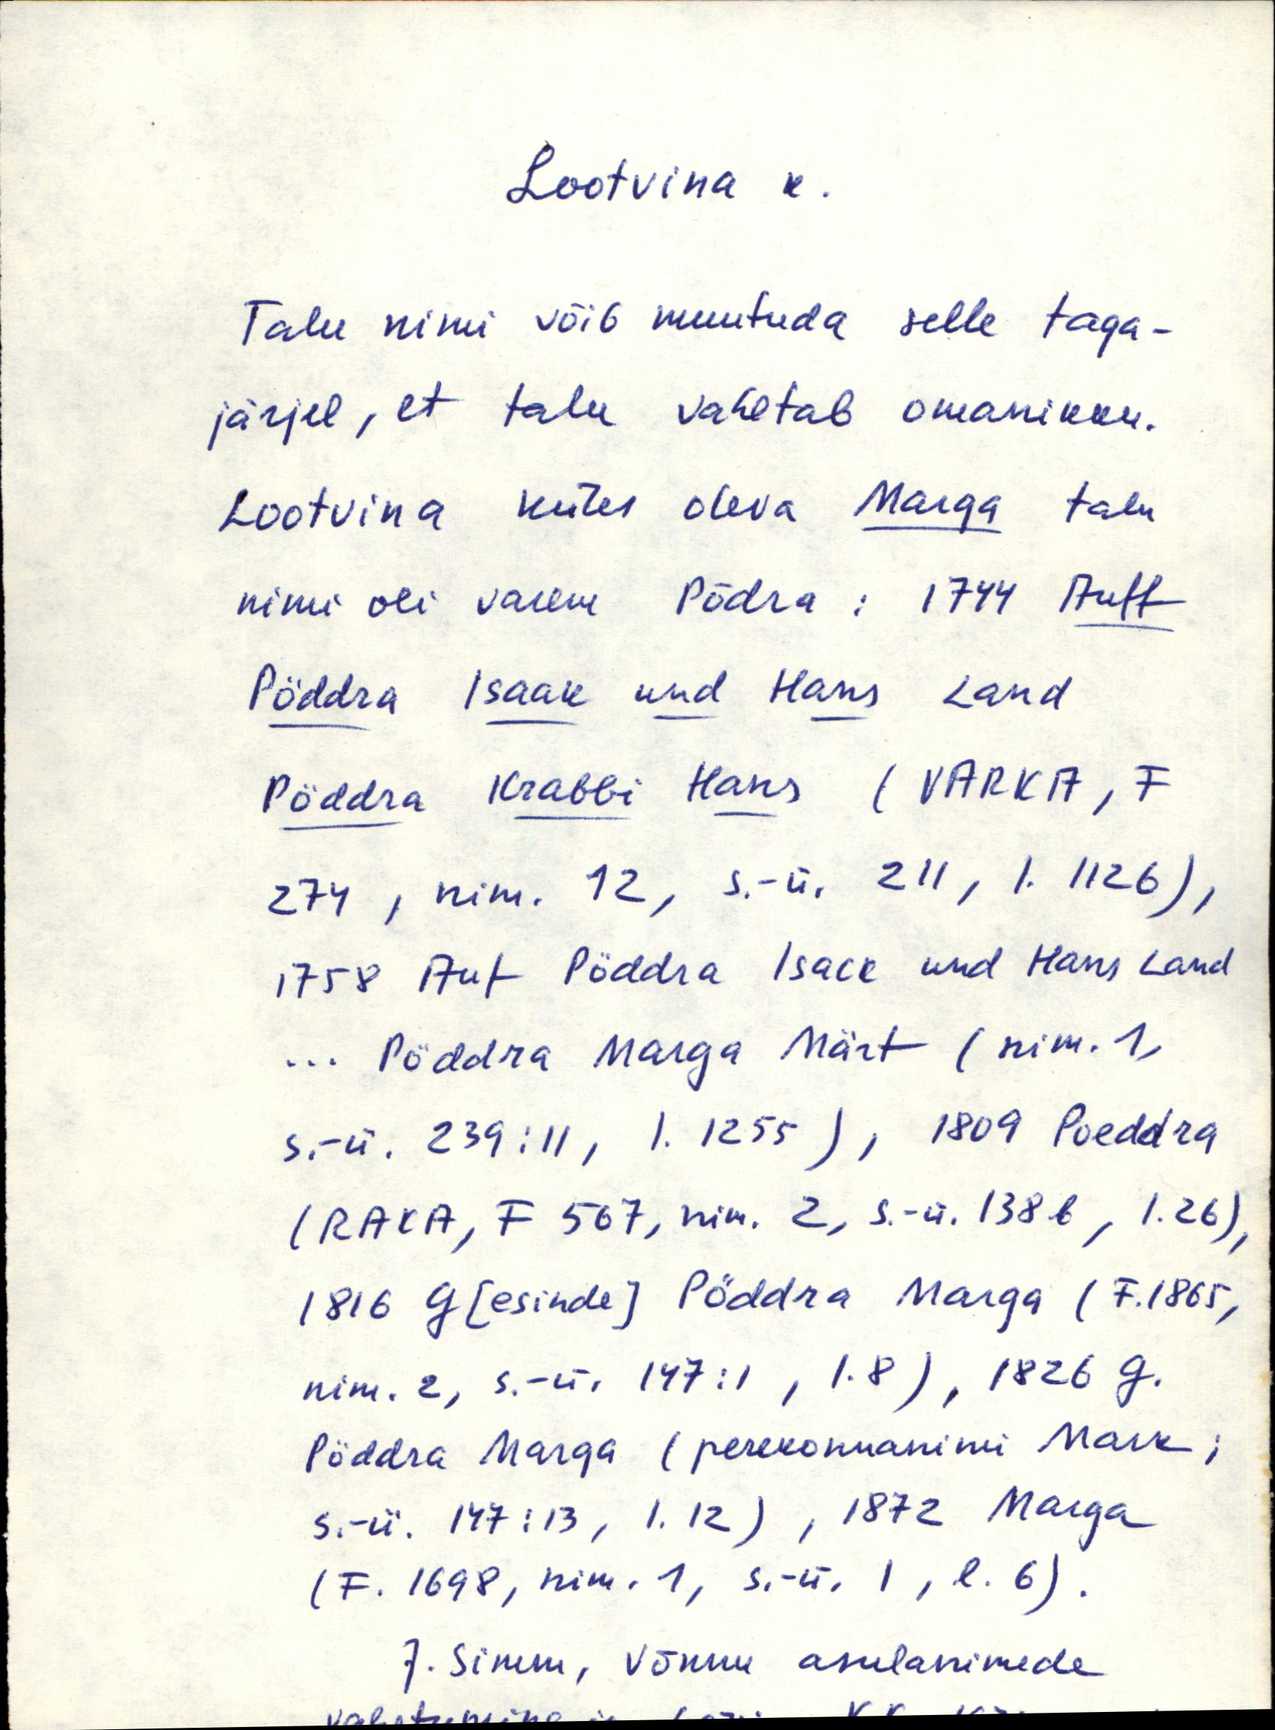 Lootvina k.
Talu nimi võib muutuda selle taga-
järjel, et talu vahetab omanikku.
Lootvina külas oleva Marga talu
nimi oli varem Põdra: 1744 Auff
Pöddra Isaak und Hans Land
Pöddra Krabbi Hans (VARKA, F
274, nim. 12, s.-ü. 211, l. 1126),
1758 Auf Pöddra Isack und Hans Land
... Pöddra Marga Märt (nim. 1,
s.-ü. 239:11, l. 1255), 1809 Poeddra
(RAKA, F 567, nim. 2, s.-ü. 138b, l. 26),
1816 G[esinde] Pöddra Marga (F. 1865,
nim. 2, s.-ü. 147:1, l. 8), 1826 G.
Pöddra Marga (perekonnanimi Mark;
s.-ü. 147:13, l. 12), 1872 Marga
(F. 1698, nim. 1, s.-ü. 1, l. 6).
J. Simm, Võnnu asulanimede